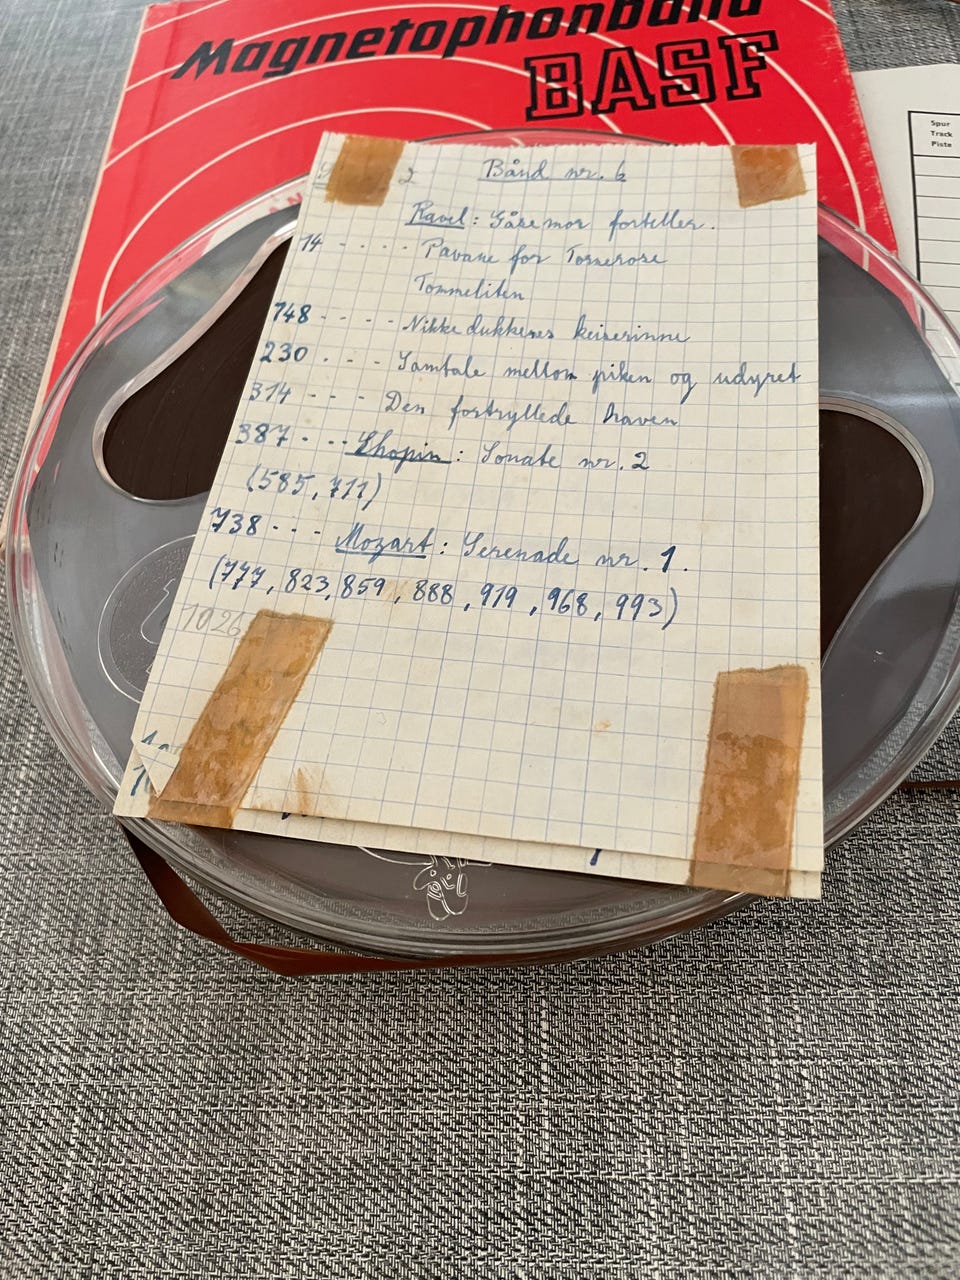 Magnetophonband
BASF
Spur
Track
Piste
2
Bånd nr. 6
Ravel: Gåsemor forteller.
14 - - - - Pavane for Tornerose
Tommeliten
148 - - - - Nikkedukkenes keiserinne
230 - - - Samtale mellom piken og udyret
314 - - - Den fortryllede haven
387 - - - Chopin: Sonate nr. 2
(585, 711)
738 - - - Mozart: Serenade nr. 1.
(777, 823, 859, 888, 919, 968, 993)
1026